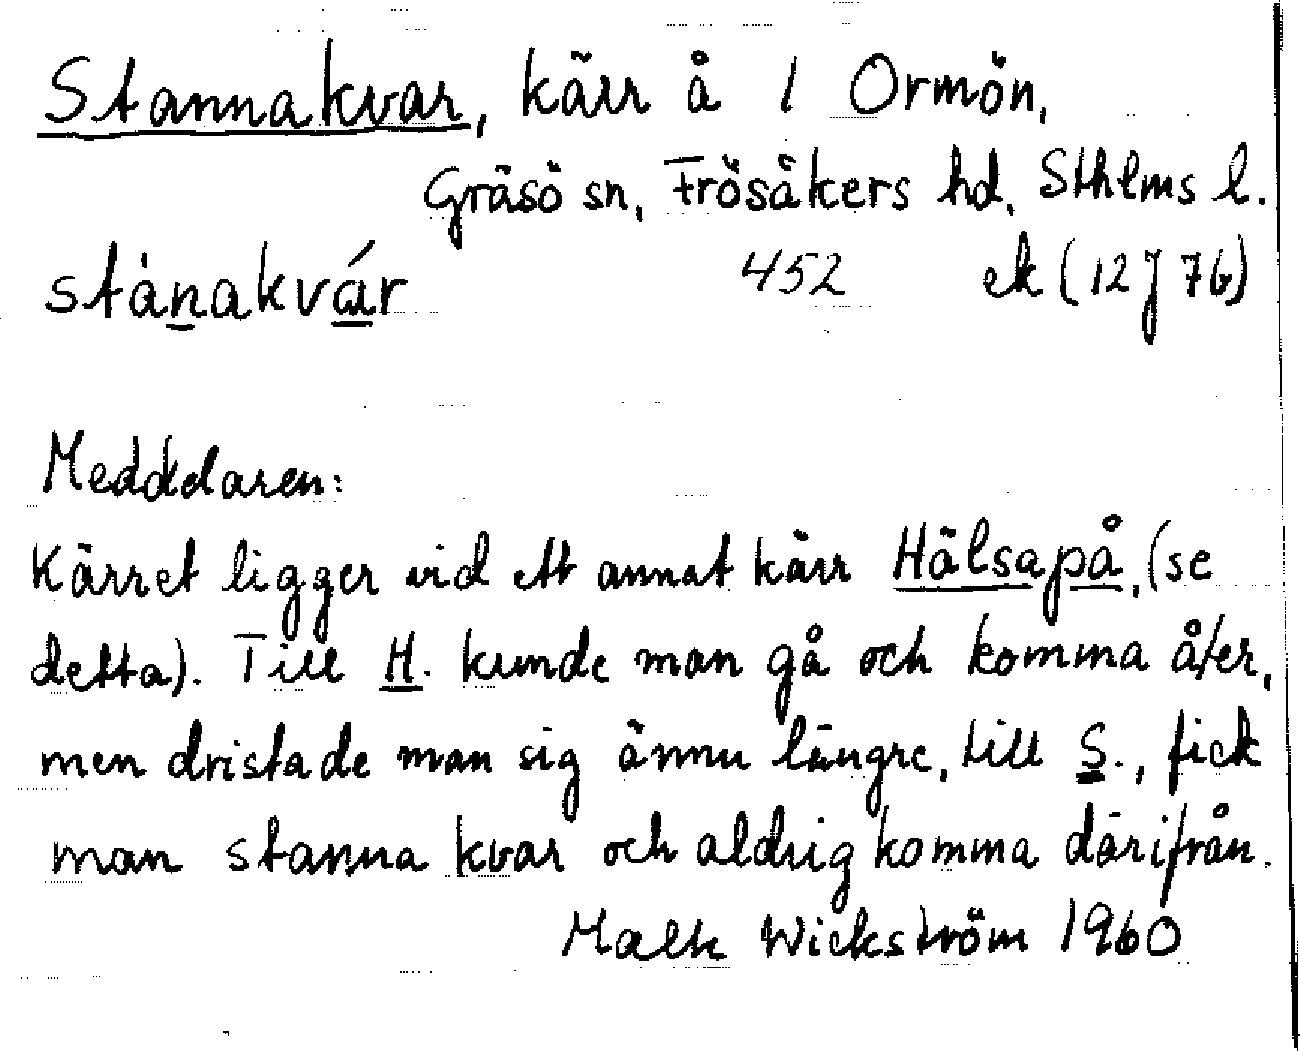 Stannakvar, kärr å 1 Ormön,
Gräsö sn, Frösåkers hd, Sthlms l.
stànakvár 452 ek (12J 76)
Meddelaren:
Kärret ligger vid ett annat kärr Hälsapå, (se
detta). Till H. kunde man gå och komma åter,
men dristade man sig ännu längre, till S., fick
man stanna kvar och aldrig komma därifrån.
Wickström 1960